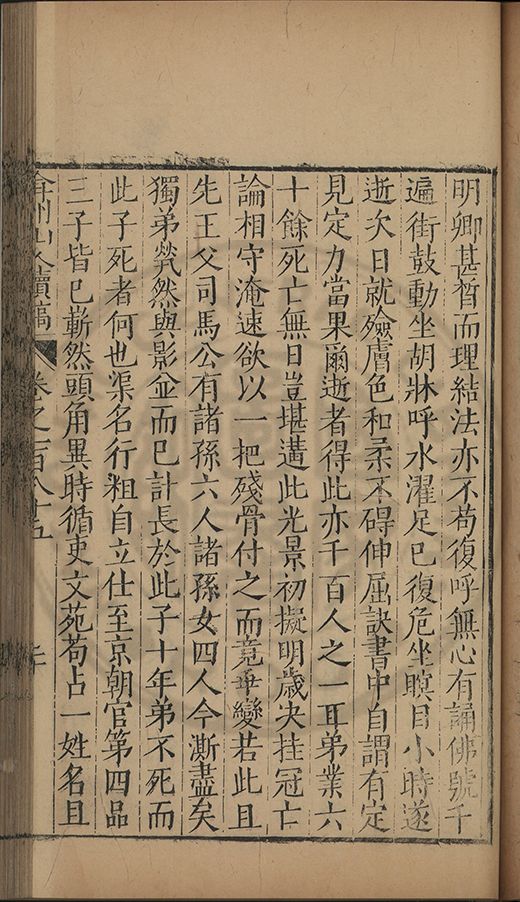 明卿甚皙而理結法亦不苟復呼無心有誦佛號千
遍街鼓動坐胡牀呼水濯足已復危坐瞑目小時遂
逝次日就殮膚色和柔不碍伸屈訣書中自謂有定
見定力當果爾逝者得此亦千百人之一耳弟業六
十餘死亡無日豈堪遘此光景初擬明歲决挂冠亡
論相守淹速欲以一把殘骨付之而竟乖變若此且
先王父司馬公有諸孫六人諸孫女四人今澌盡矣
獨弟煢然與影俱而已計長於此子十年弟不死而
此子死者何也渠名行粗自立仕至京朝官第四品
三子皆已嶄然頭角異時循吏文苑苟占一姓名且
弇州山人續稿 卷之一百八十五